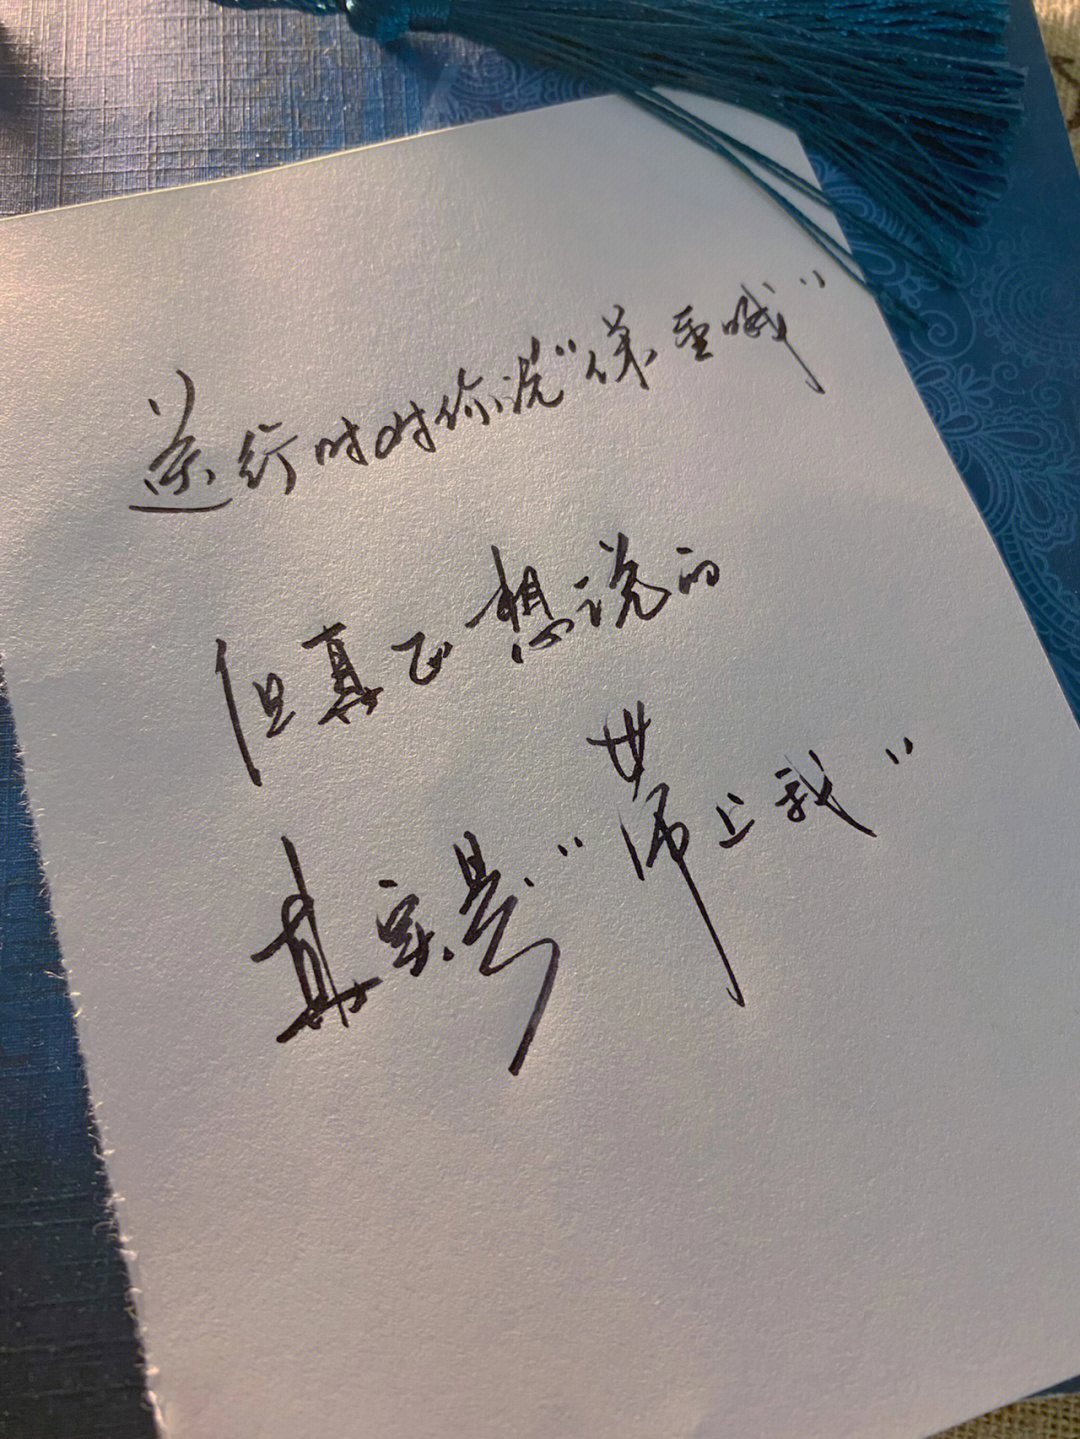 送行时对你说“保重哦”
但真正想说的
其实是“带上我”